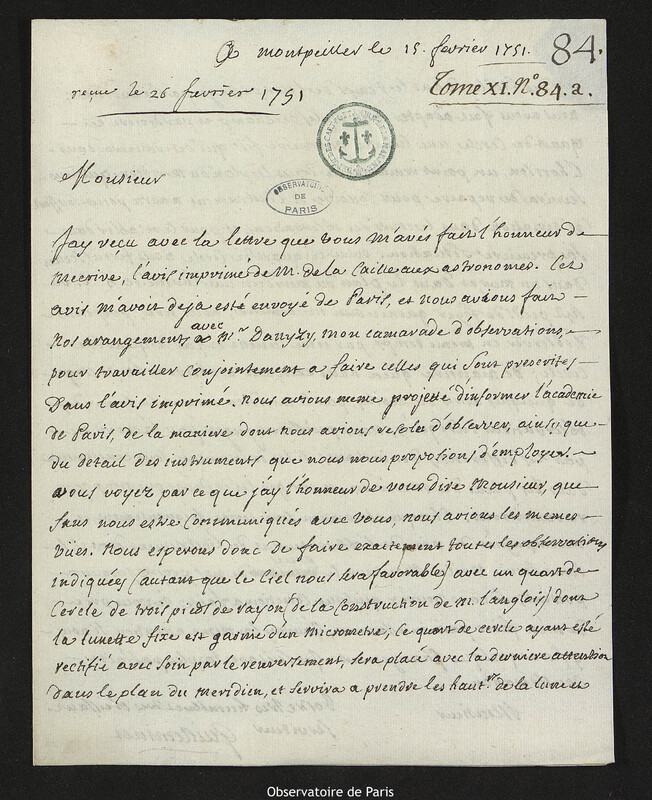 A montpellier le 15. fevrier 1751.
84.
reçue le 26 fevrier 1751
Tome XI. N.º 84. a.
OBSERVATOIRE
DE
PARIS
Monsieur
Jay reçu avec la lettre que vous m'avés fait l'honneur de
mecrire, l'avis imprimé de M. de la Caille aux astronomes. Cet
avis m'avoit deja esté envoyé de Paris, et nous avions fait
nos arangements avec Mr. Danyzy, mon camarade d'observations
pour travailler conjointement a faire celles qui sont prescrites
Dans l'avis imprimé. nous avions meme projetté d'informer l'academie
de Paris, de la maniere dont nous avions resolu d'observer, ainsi que
du detail des instruments que nous nous proposions d'employer.
vous voyez par ce que j'ay l'honneur de vous dire Monsieur, que
sans nous estre communiqués avec vous, nous avions les memes
vües. nous esperons donc de faire exactement toutes les observations
indiquées (autant que le Ciel nous sera favorable) avec un quart de
Cercle de trois pieds de rayon (de la Construction de M. l'anglois) dont
la lunette fixe est garnie d'un Micrometre; Ce quart de cercle ayant esté
rectifié avec soin par le renversement, sera placé avec la derniere attention
dans le plan du meridien, et servira a prendre les hautrs. de la lune et
Observatoire de Paris